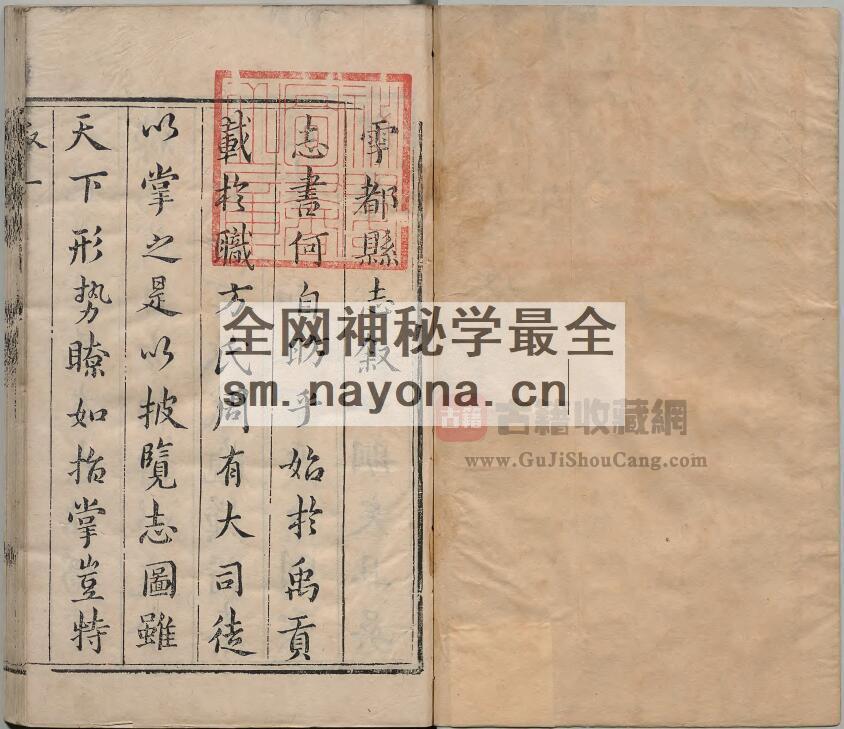 雩都縣志叙
志書何自昉乎始於禹貢
載於職方氏周有大司徒
以掌之是以披覽志圖雖
天下形势瞭如指掌豈特
全网神秘学最全
sm.nayona.cn
古籍
古籍收藏網
www.GuJiShouCang.com